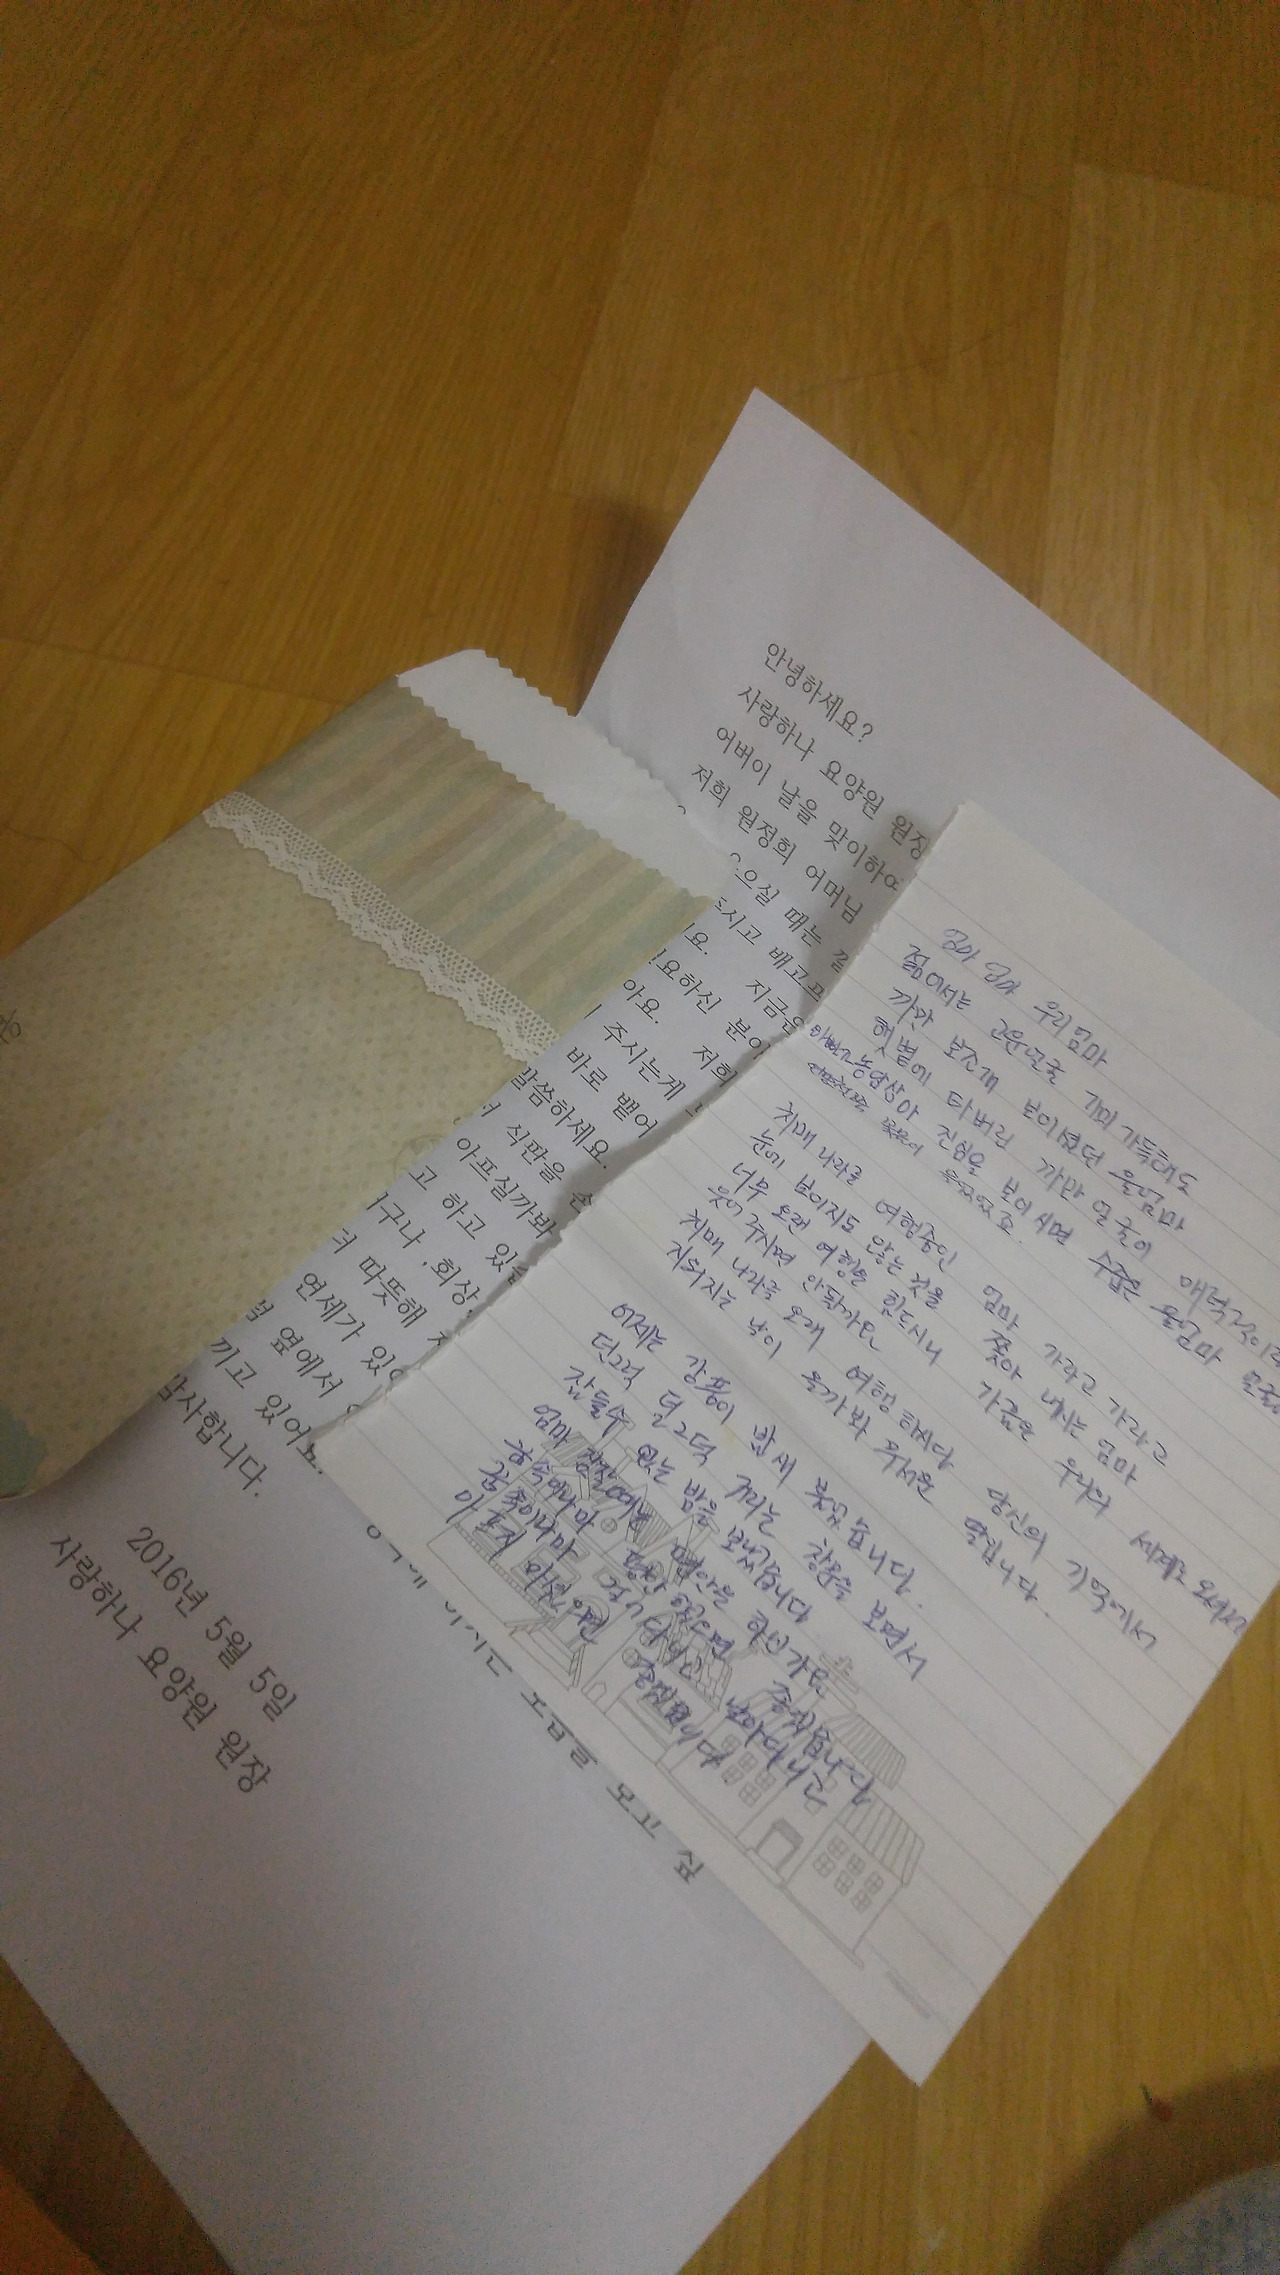 안녕하세요?
사랑하나 요양원 원장
어버이 날을 맞이하여
저희 원정희 어머님
으실 때는
시고 배고프
요. 지금은
요하신 분이
아요. 저희
주시는게
바로 뱉어
말씀하세요.
서 식판을 손
아프실까봐
고 하고 있
구나, 회상,
더 따뜻해
연세가 있
옆에서
끼고 있어요.
감사합니다.
2016년 5월 5일
사랑하나 요양원 원장
보고 싶
엄마 엄마 우리엄마
젊어서는 고운얼굴 기미 가득해도
까만 보조개 보이셨던 울엄마
햇볕에 타버린 까만 얼굴이 매력적이
진심을 보이시면 수줍은 울엄마
치매 나라로 여행중인 엄마 가라고 가라고
눈에 보이지도 않는 것을 쫓아 내시는 엄마
너무 오랜 여행을 한다시니 가끔은 우리의 세계로 오셔서
웃어 주시면 안될까요
치매 나라로 오래 여행 하시다 당신의 기억에서
지워지는 날이 올까봐 무서운 딸입니다.
어제는 강풍이 밤새 불었습니다.
덜그덕 덜그덕 거리는 창문을 보면서
잠들수 없는 밤을 보냈습니다
엄마 잠잘에는 편안을 하신가요
꿈속이나마 좋겠습니다
꿈속이나마 걸어 다니고 날아다니고
아프지 마셨으면 좋겠습니다